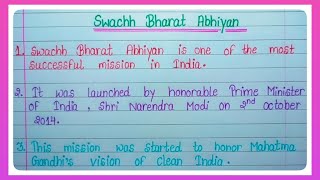 Swachh Bharat Abhiyan
1. Swachh Bharat Abhiyan is one of the most
successful mission in India.
2. It was launched by honorable Prime Minister
of India, Shri Narendra Modi on 2nd october
2014.
3. This mission was started to honor Mahatma
Gandhi's vision of clean India.